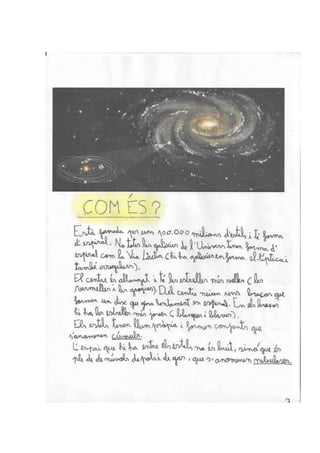 COM ÉS?
Està formada per uns 100.000 milions d'estels i té forma
d'espiral. No totes les galàxies de l'Univers tenen forma d'
espiral com la Via Làctia (hi ha galàxies en forma el·líptica i
també irregulars).
El centre és allargat i té les estrelles més velles (les
vermelles i les grogues). Del centre neixen uns braços que
formen un disc que gira lentament en espiral. En els braços
hi ha les estrelles més joves (blanques i blaves).
Els estels tenen llum pròpia i formen conjunts que
s'anomenen cúmuls.
L'espai que hi ha entre els estels no és buit, sinó que és
ple de de núvols de pols i de gas, que s'anomenen nebuloses.